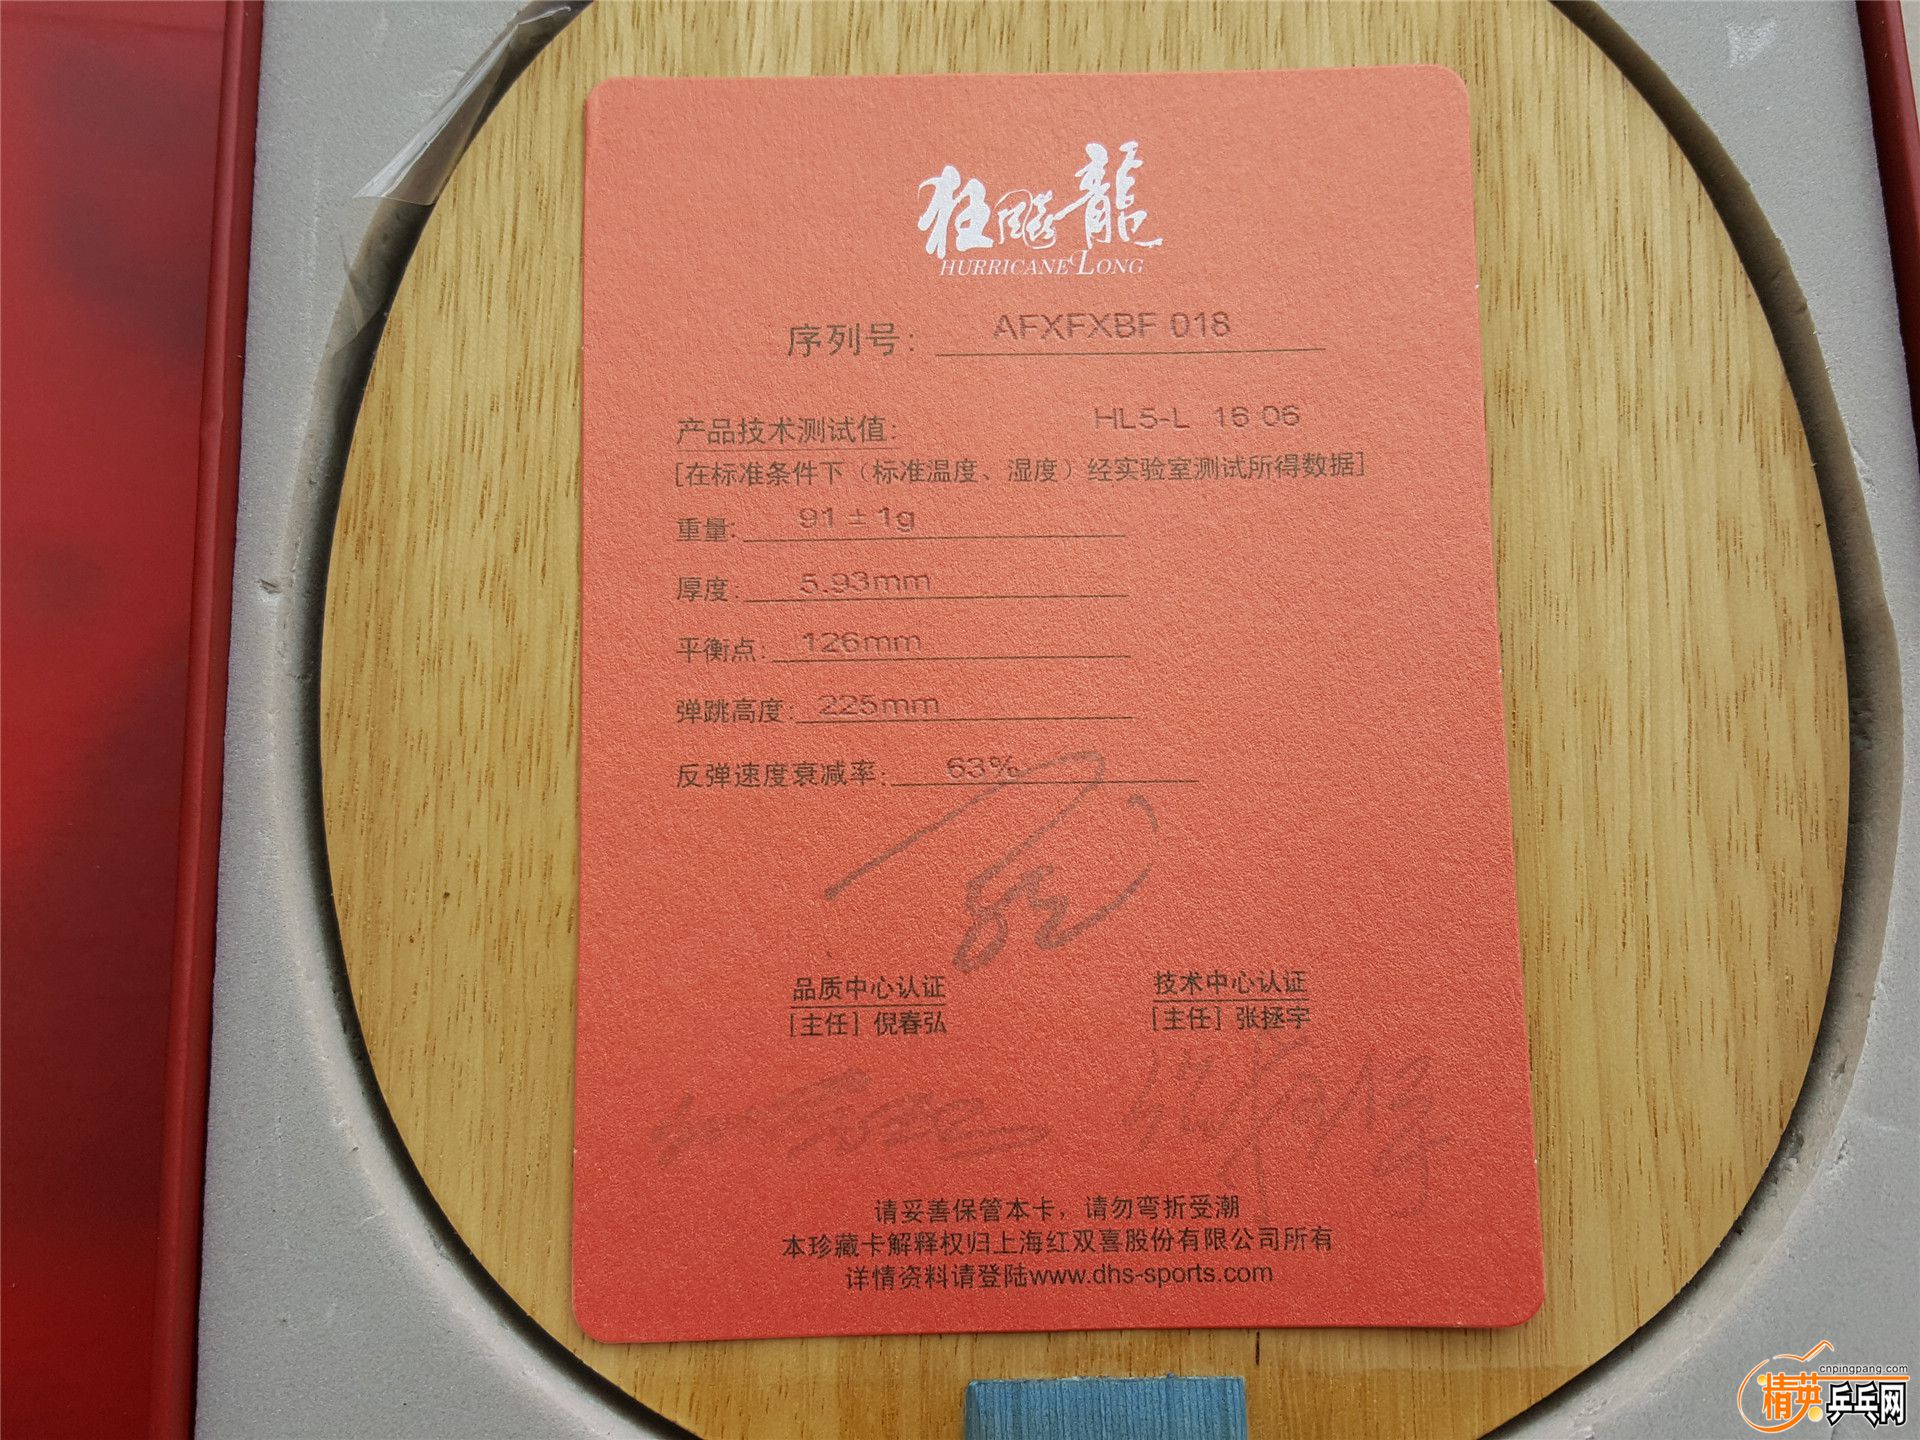 狂飚龍
HURRICANE LONG
序列号: AFXFXBF 018
产品技术测试值: HL5-L 16 06
[在标准条件下（标准温度、湿度）经实验室测试所得数据]
重量: 91 ± 1g
厚度: 5.93mm
平衡点: 126mm
弹跳高度: 225mm
反弹速度衰减率: 63%
品质中心认证 技术中心认证
[主任] 倪春弘 [主任] 张拯宇
请妥善保管本卡，请勿弯折受潮
本珍藏卡解释权归上海红双喜股份有限公司所有
详情资料请登陆www.dhs-sports.com
cnpingpang.com
精英乒乓网